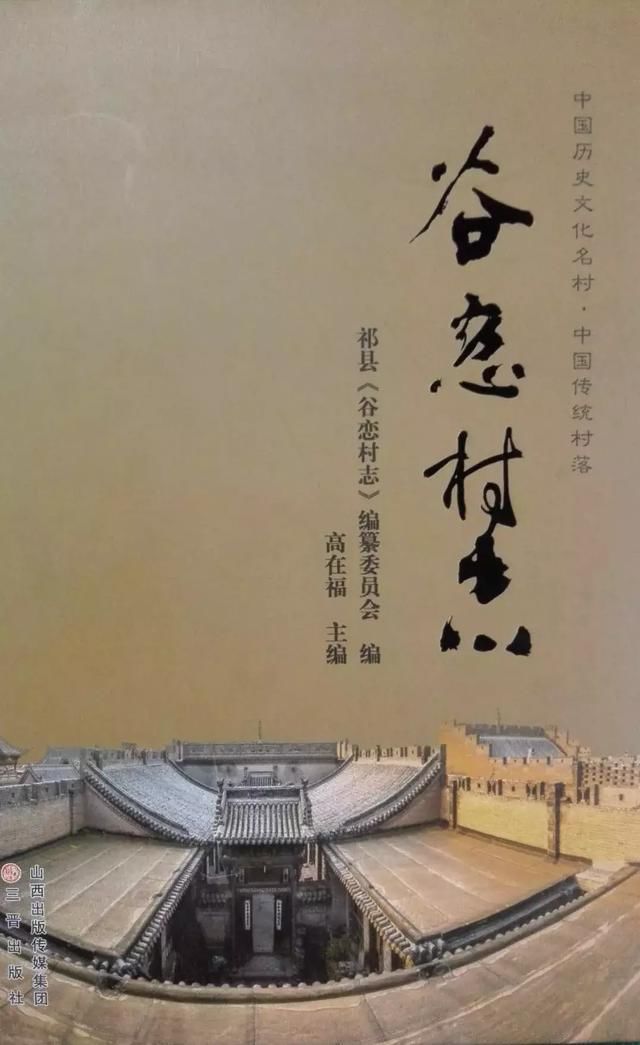 中国历史文化名村·中国传统村落
谷恋村志
祁县《谷恋村志》编纂委员会 编
高在福 主编
山西出版传媒集团
三晋出版社